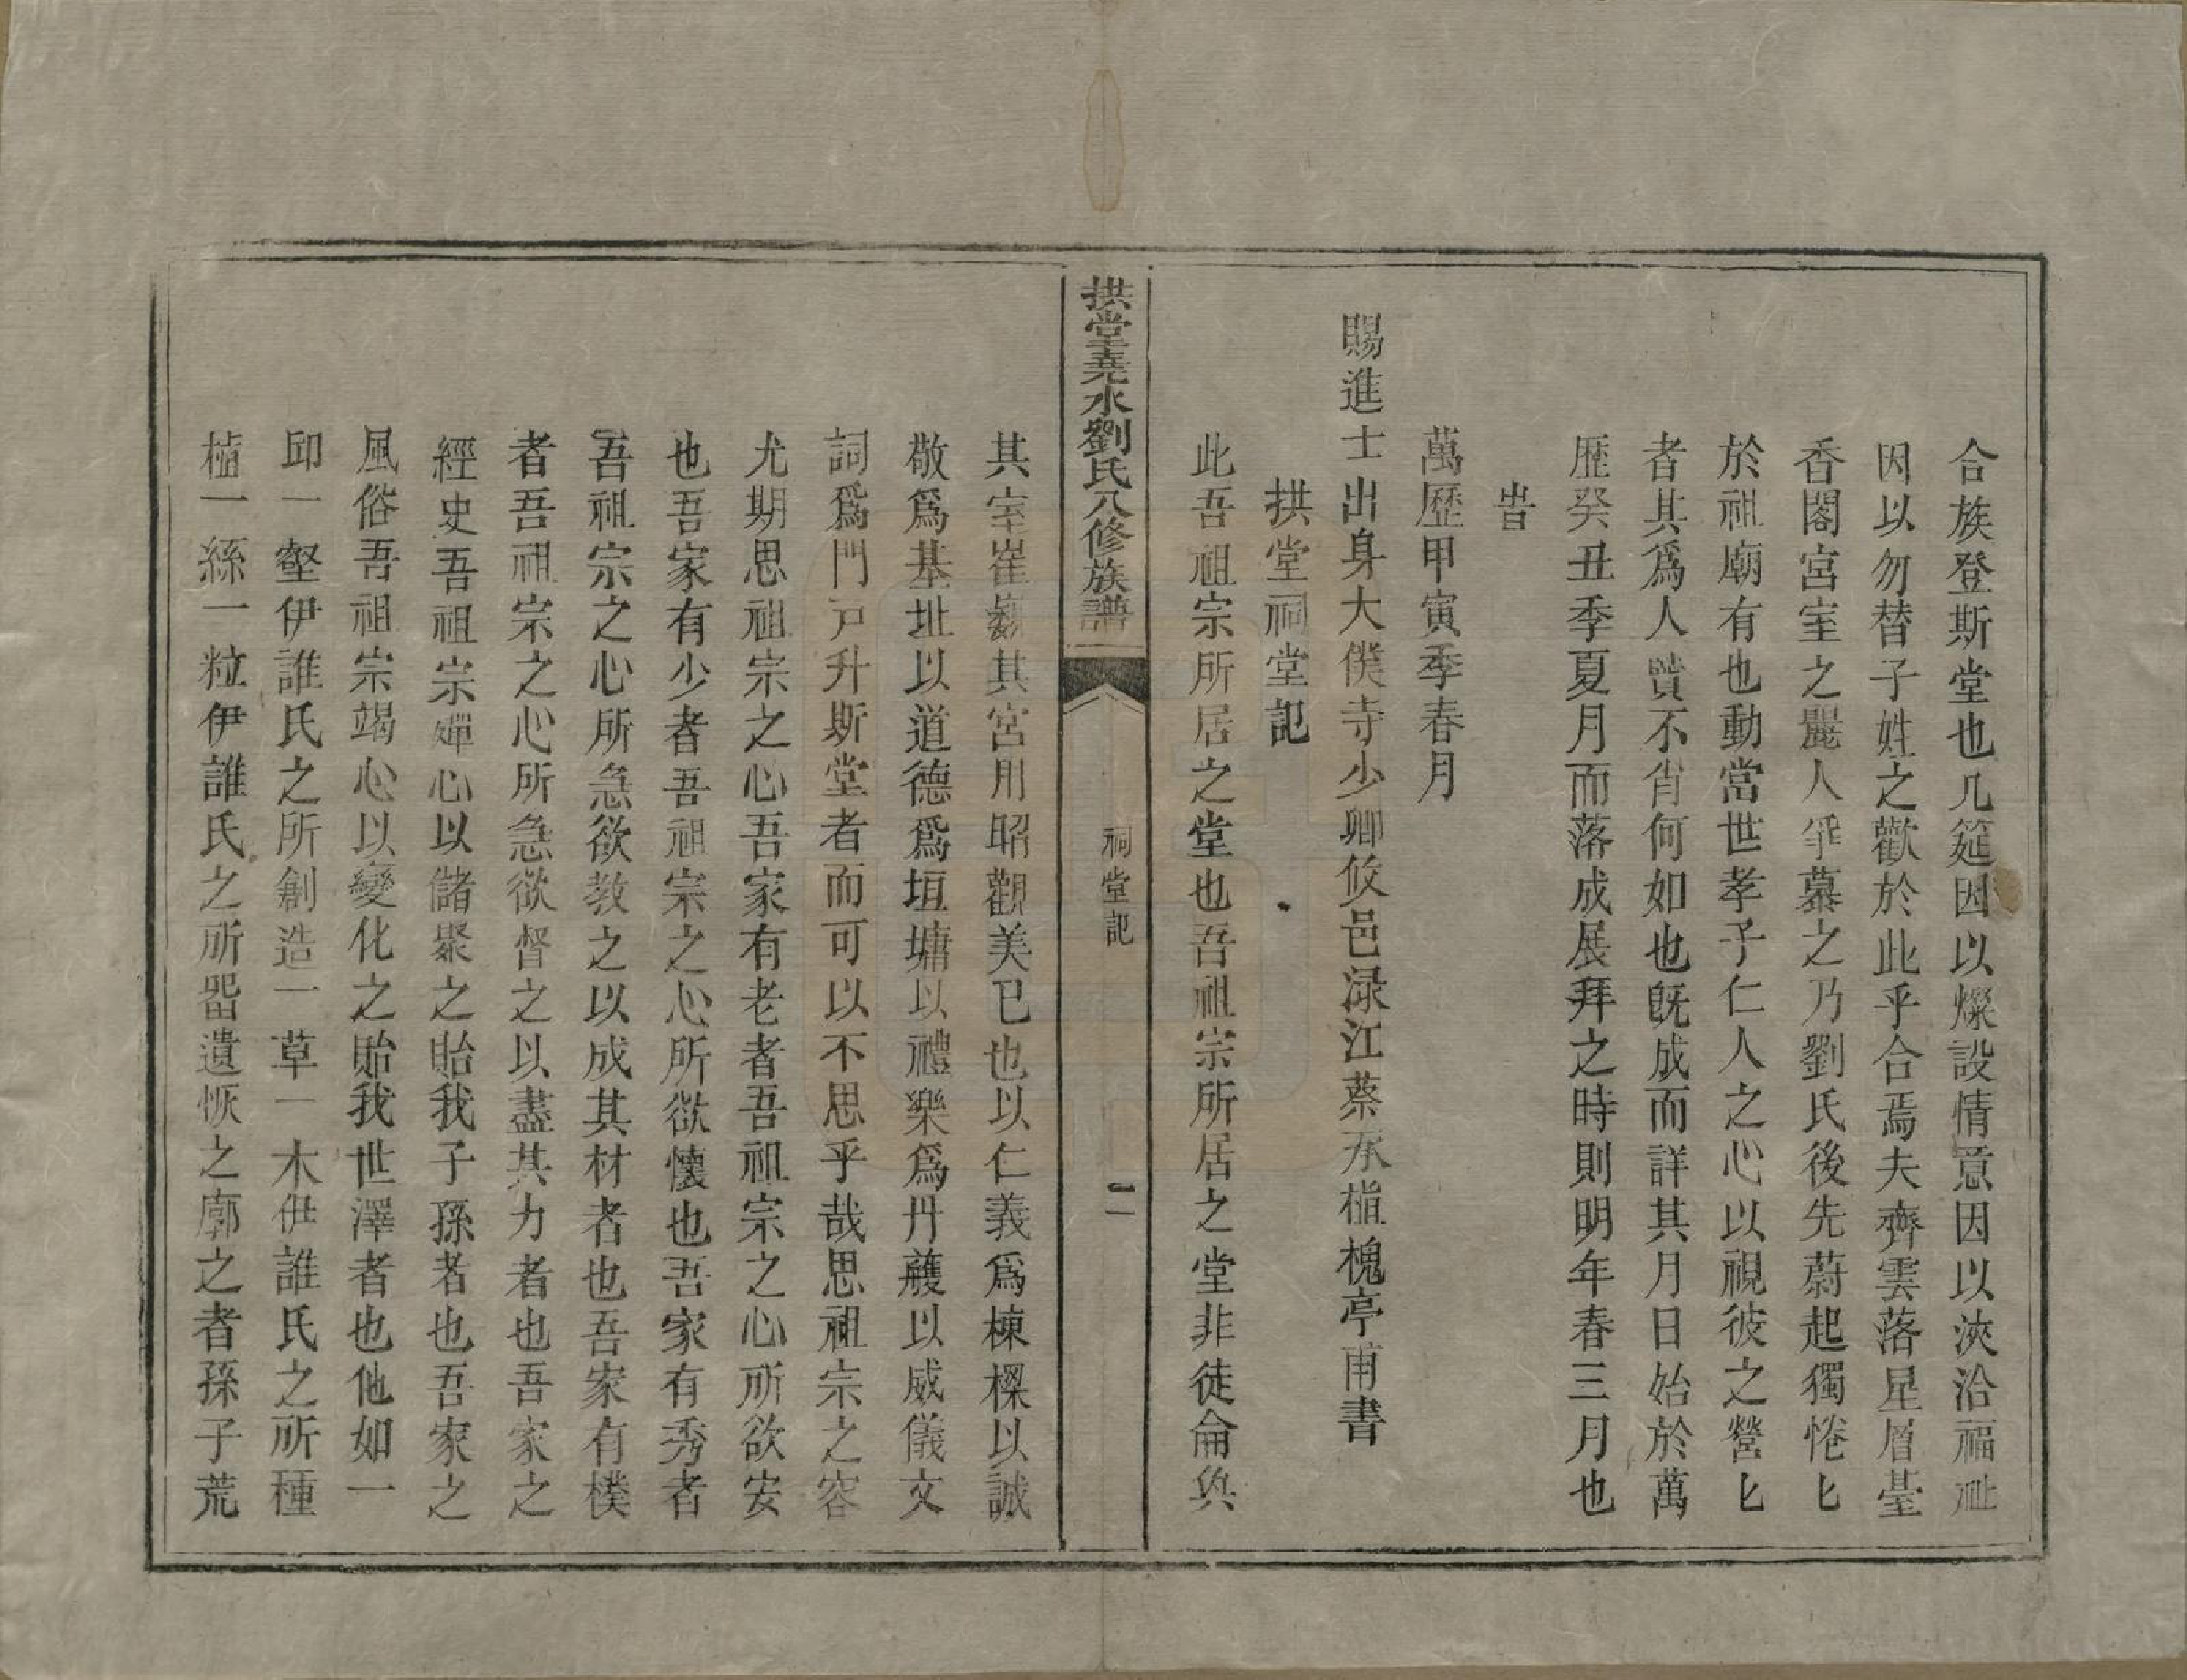 合族登斯堂也几筵因以燦設情意因以浹洽福祉
因以勿替子姓之歡於此乎合焉夫齊雲落星層臺
香閣宮室之麗人爭慕之乃劉氏後先蔚起獨惓匕
於祖廟有也動當世孝子仁人之心以視彼之營匕
者其爲人賢不肖何如也旣成而詳其月日始於萬
歷癸丑季夏月而落成展拜之時則明年春三月也
旹
萬歷甲寅季春月
賜進士出身大僕寺少卿攸邑渌江蔡承植槐亭甫書
拱堂祠堂記
此吾祖宗所居之堂也吾祖宗所居之堂非徒侖奐
拱堂堯水劉氏八修族譜
祠堂記
二
其室崔巍其宮用昭觀美已也以仁義爲棟樑以誠
敬爲基址以道德爲垣墉以禮樂爲丹雘以威儀文
詞爲門戸升斯堂者而可以不思乎哉思祖宗之容
尤期思祖宗之心吾家有老者吾祖宗之心所欲安
也吾家有少者吾祖宗之心所欲懷也吾家有秀者
吾祖宗之心所急欲教之以成其材者也吾家有樸
者吾祖宗之心所急欲督之以盡其力者也吾家之
經史吾祖宗嬋心以儲聚之貽我子孫者也吾家之
風俗吾祖宗竭心以變化之貽我世澤者也他如一
邱一壑伊誰氏之所創造一草一木伊誰氏之所種
植一絲一粒伊誰氏之所畱遺恢之廓之者孫子荒